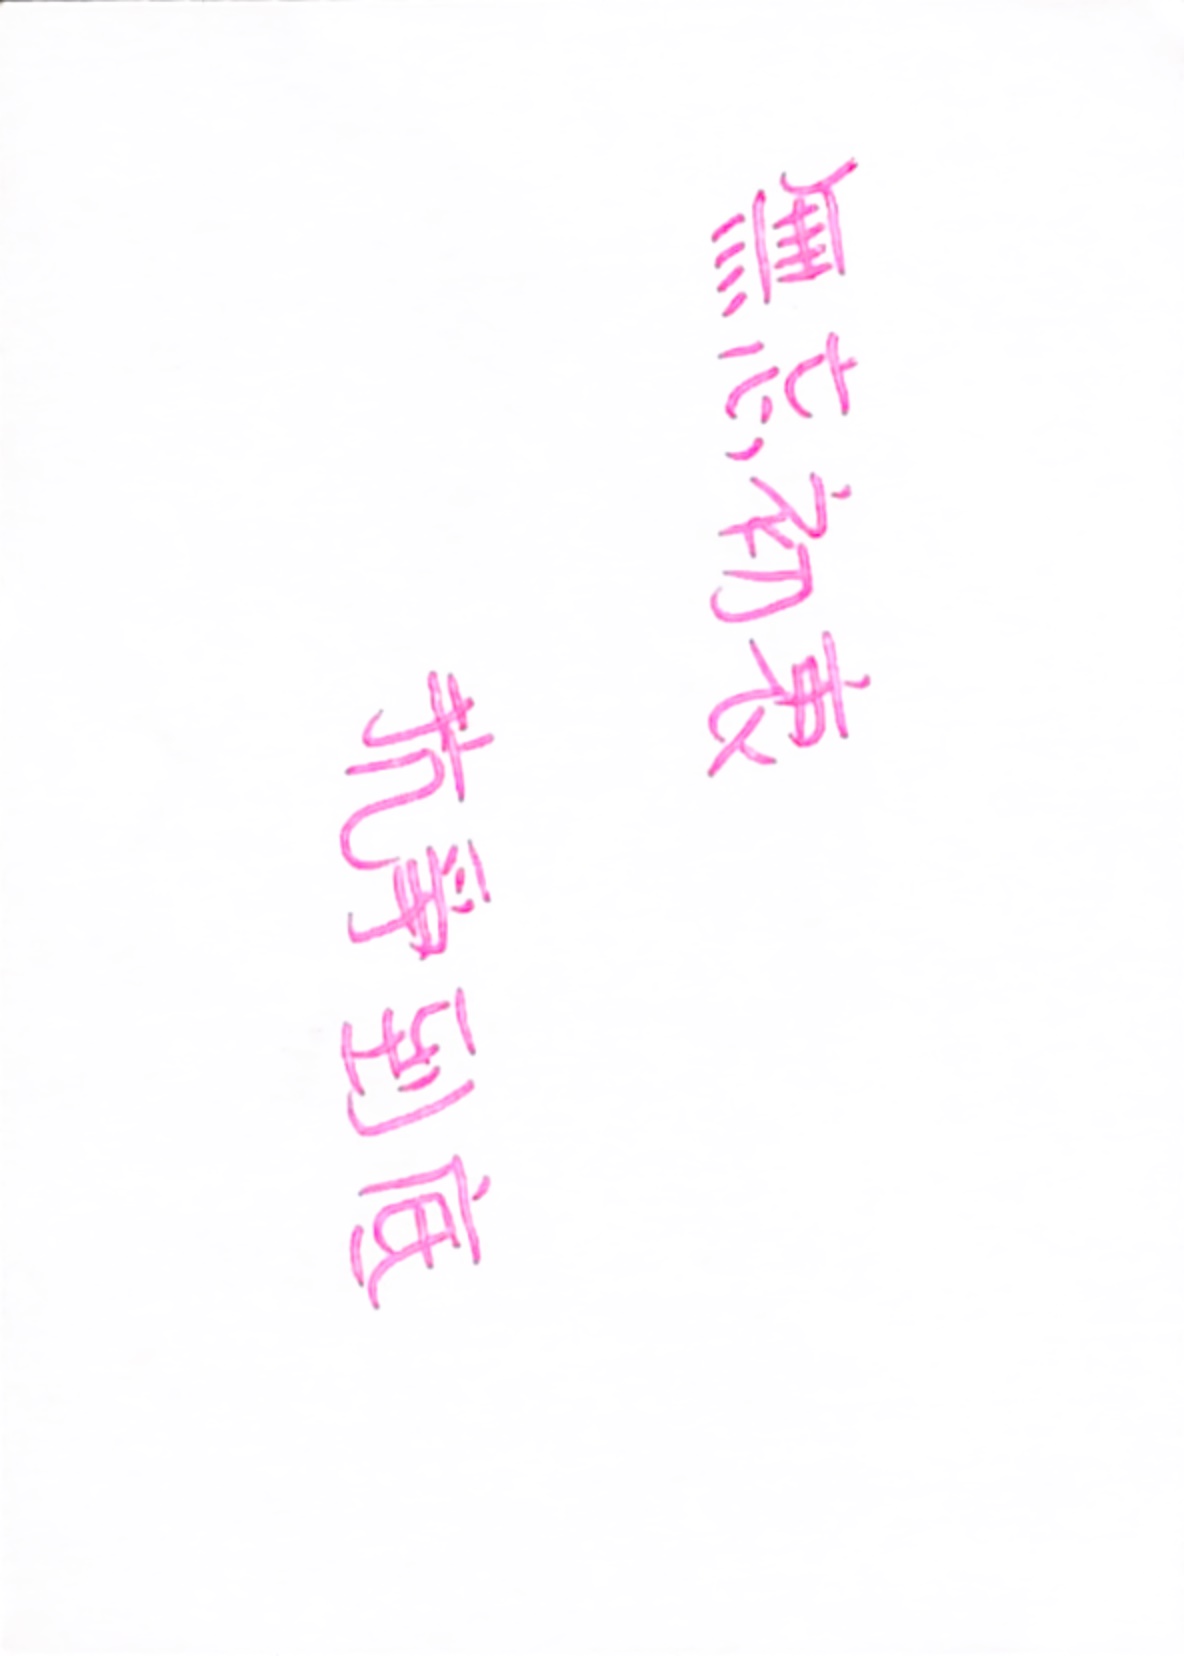 無忘初衷
抗爭到底